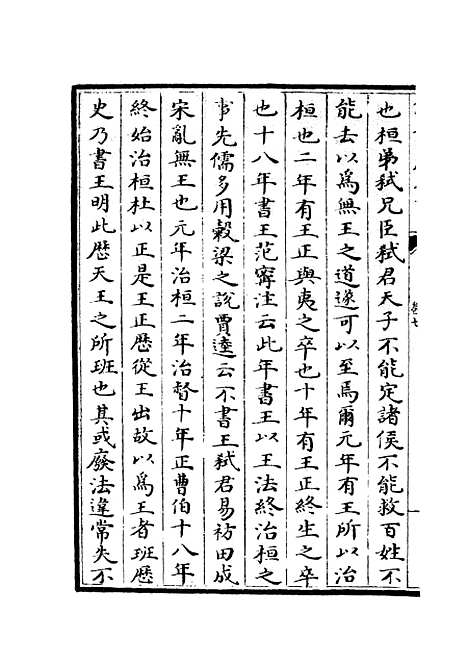 也桓弟弑兄臣弑君天子不能定諸侯不能救百姓不
能去以爲無王之道遂可以至焉爾元年有王所以治
桓也二年有王正與夷之卒也十年有王正終生之卒
也十八年書王范甯注云此年書王以王法終治桓之
事先儒多用穀梁之說賈逵云不書王弑君易祊田成
宋亂無王也元年治桓二年治督十年正曹伯十八年
終始治桓杜以正是王正厯從王出故以爲王者班厯
史乃書王明此厯天王之所班也其或廢法違常失不
卷七